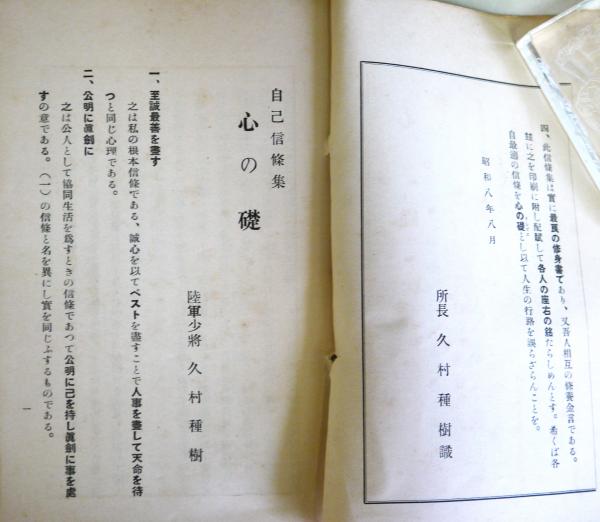 四、此信條集は實に最良の修身書であり、又吾人相互の修養金言である。
玆に之を印刷に附し配賦して各人の座右の銘たらしめんとす。希くば各
自最適の信條を心の礎とし以て人生の行路を誤らざらんことを。
昭和八年八月
所長 久村種樹識
自己信條集
心の礎
陸軍少將 久村種樹
一、至誠最善を盡す
之は私の根本信條である、誠心を以てベストを盡すことで人事を盡して天命を待
つと同じ心理である。
二、公明に眞劍に
之は公人として協同生活を爲すときの信條であつて公明に己を持し眞劍に事を處
すの意である。(一)の信條と名を異にし實を同じふするものである。
一